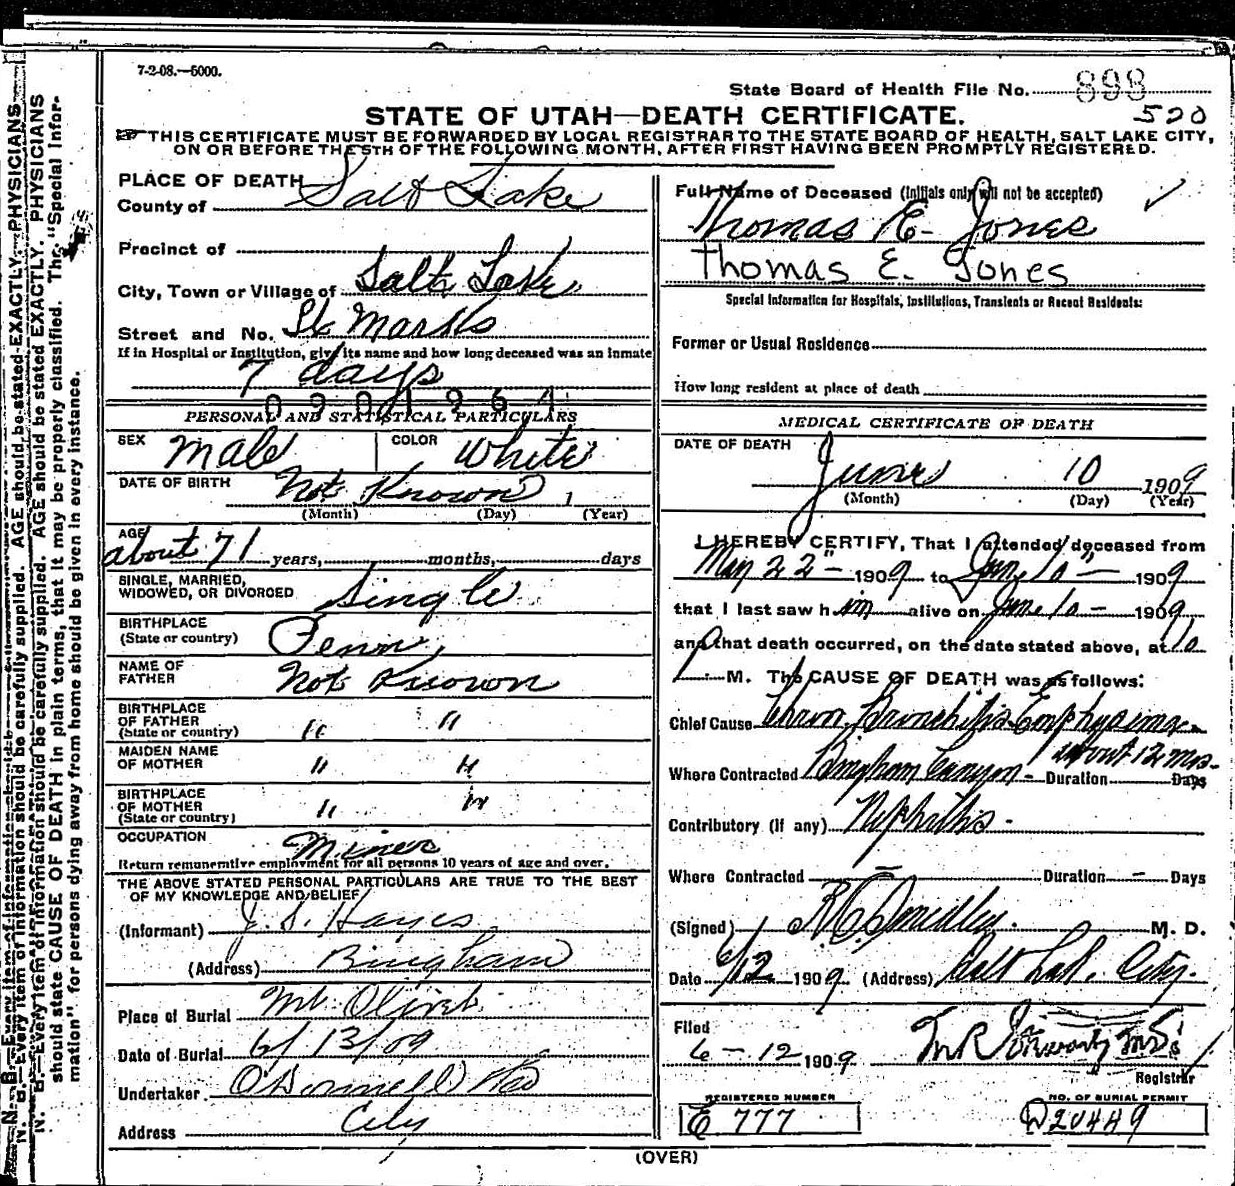 7-2-08.—5000.
State Board of Health File No. 898
520
STATE OF UTAH—DEATH CERTIFICATE.
THIS CERTIFICATE MUST BE FORWARDED BY LOCAL REGISTRAR TO THE STATE BOARD OF HEALTH, SALT LAKE CITY,
ON OR BEFORE THE 5TH OF THE FOLLOWING MONTH, AFTER FIRST HAVING BEEN PROMPTLY REGISTERED.
PLACE OF DEATH
County of Salt Lake
Precinct of
City, Town or Village of Salt Lake
Street and No. St Marks
If in Hospital or Institution, give its name and how long deceased was an inmate
7 days
PERSONAL AND STATISTICAL PARTICULARS
SEX Male COLOR White
DATE OF BIRTH Not Known
(Month) (Day) (Year)
AGE
about 71 years, months, days
SINGLE, MARRIED,
WIDOWED, OR DIVORCED Single
BIRTHPLACE
(State or country) Penn
NAME OF
FATHER Not Known
BIRTHPLACE
OF FATHER
(State or country) " "
MAIDEN NAME
OF MOTHER " "
BIRTHPLACE
OF MOTHER
(State or country) " "
OCCUPATION Miner
Return remunerative employment for all persons 10 years of age and over.
THE ABOVE STATED PERSONAL PARTICULARS ARE TRUE TO THE BEST
OF MY KNOWLEDGE AND BELIEF
(Informant) J. S. Hayes
(Address) Bingham
Place of Burial Mt Olivet
Date of Burial 6/13/09
Undertaker O'Donnell & Co
Address City
Full Name of Deceased (Initials only will not be accepted)
Thomas E. Jones
Thomas E. Jones
Special Information for Hospitals, Institutions, Transients or Recent Residents:
Former or Usual Residence
How long resident at place of death
MEDICAL CERTIFICATE OF DEATH
DATE OF DEATH
June 10 1909
(Month) (Day) (Year)
I HEREBY CERTIFY, That I attended deceased from
May 22" 1909 to June 10" 1909
that I last saw him alive on June 10 1909
and that death occurred, on the date stated above, at 10
P. M. The CAUSE OF DEATH was as follows:
Chief Cause Chron. Bronchitis-Emphysema-
about 12 mos-
Where Contracted Bingham Canyon- Duration Days
Contributory (if any) Nephritis-
Where Contracted Duration - Days
(Signed) M. D.
Date 6/12 1909 (Address) Salt Lak. City.
Filed
6-12 1909
Registrar
REGISTERED NUMBER
E 777
NO. OF BURIAL PERMIT
D20449
(OVER)
N. B.—Every item of information should be carefully supplied. AGE should be stated EXACTLY. PHYSICIANS
should state CAUSE OF DEATH in plain terms, that it may be properly classified. The "Special Infor-
mation" for persons dying away from home should be given in every instance.